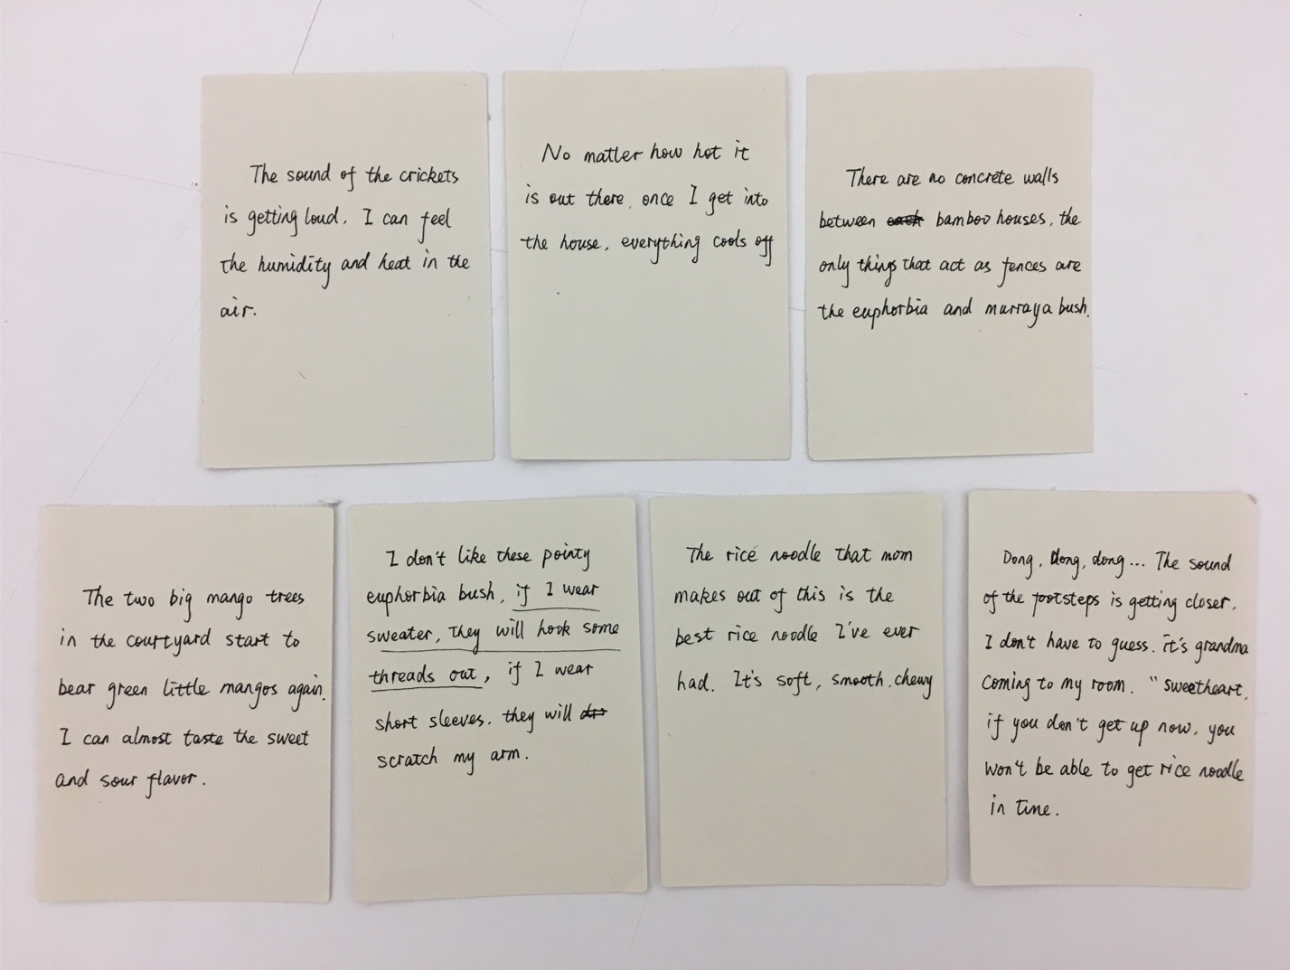 The sound of the crickets
is getting loud. I can feel
the humidity and heat in the
air.
No matter how hot it
is out there, once I get into
the house, everything cools off
There are no concrete walls
between each bamboo houses, the
only things that act as fences are
the euphorbia and murraya bush.
The two big mango trees
in the courtyard start to
bear green little mangos again.
I can almost taste the sweet
and sour flavor.
I don't like these pointy
euphorbia bush, if I wear
sweater, they will hook some
threads out, if I wear
short sleeves, they will
scratch my arm.
The rice noodle that mom
makes out of this is the
best rice noodle I've ever
had. It's soft, smooth, chewy
Dong, Dong, dong... The sound
of the footsteps is getting closer,
I don't have to guess, it's grandma
coming to my room. "sweetheart,
if you don't get up now, you
won't be able to get rice noodle
in time.